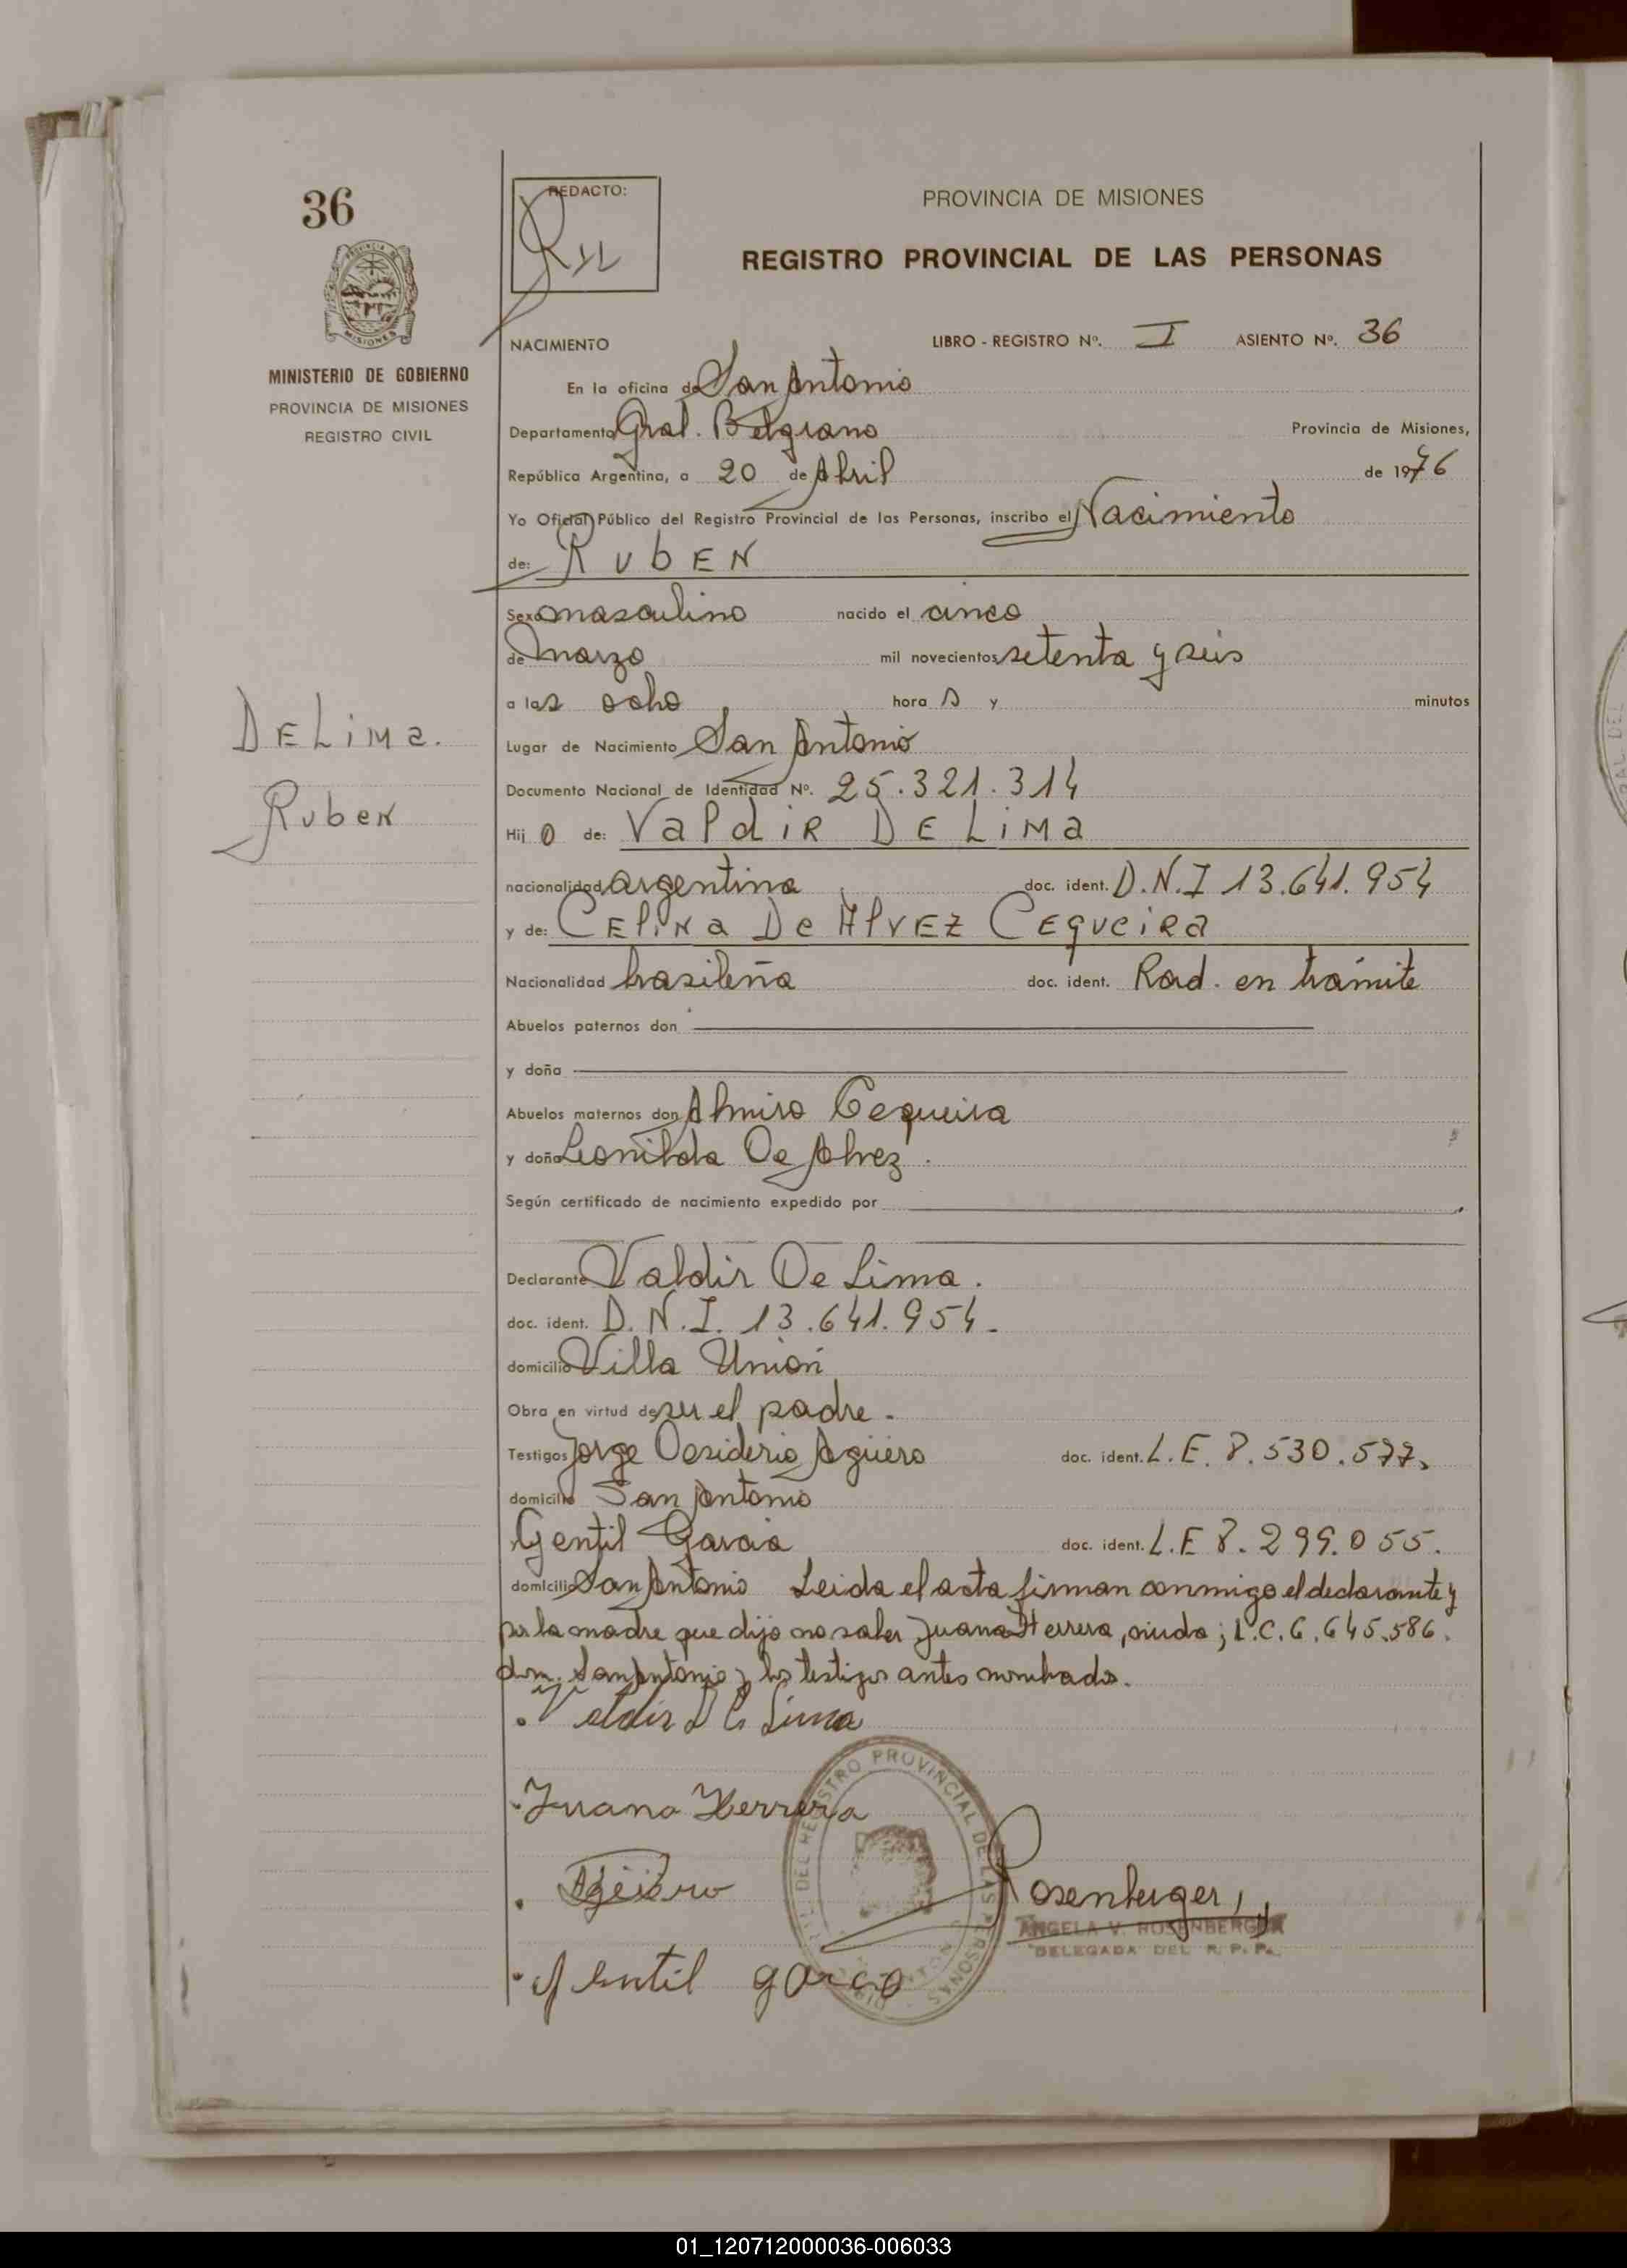 36
MISIONES
MINISTERIO DE GOBIERNO
PROVINCIA DE MISIONES
REGISTRO CIVIL
DE LiMa.
Ruben
REDACTO:
PROVINCIA DE MISIONES
REGISTRO PROVINCIAL DE LAS PERSONAS
NACIMIENTO LIBRO - REGISTRO Nº. I ASIENTO Nº. 36
En la oficina de San Antonio
Departamento Gral. Belgrano Provincia de Misiones,
República Argentina, a 20 de Abril de 1976
Yo Oficial Público del Registro Provincial de las Personas, inscribo el Nacimiento
de: RubEN
Sexo masculino nacido el cinco
de marzo mil novecientos setenta y seis
a las ocho hora s y minutos
Lugar de Nacimiento San Antonio
Documento Nacional de Identidad Nº. 25.321.314
Hij o de: ValdiR DE LiMa
nacionalidad argentina doc. ident. D.N.I 13.641.954
y de: CEliNa De AlvEz CEqueiRa
Nacionalidad brasileña doc. ident. Rad. en trámite
Abuelos paternos don
y doña
Abuelos maternos don Almiro Cequeira
y doña Leonilda De Alvez.
Según certificado de nacimiento expedido por
Declarante Valdir De Lima.
doc. ident. D.N.I. 13.641.954.
domicilio Villa Unión
Obra en virtud de ser el padre.
Testigos Jorge Desiderio Agüero doc. ident. L.E. 8.530.577.
domicilio San Antonio
Gentil Garcia doc. ident. L.E 8.299.055.
domicilio San Antonio Leida el acta firman conmigo el declarante y
por la madre que dijo no saber Juana Herrera, viuda; L.C. 6.645.586.
dom. San Antonio y los testigos antes nombrados.
Valdir De Lima
Juana Herrera
Agüero
Rosenberger
ANGELA V. ROSENBERGER
DELEGADA DEL R. P. P.
DEL REGISTRO PROVINCIAL DE LAS PERSONAS
Gentil garcia
01_120712000036-006033